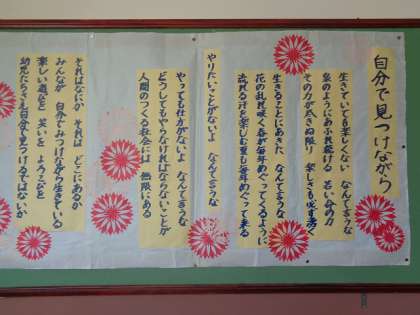 自分で見つけながら
生きていても楽しくない なんて言うな
泉のようにあふれ続ける 若い命の力
その力が尽きぬ限り 楽しさも尽き
生きることにあきた なんて言うな
花の乱れ咲く春が毎年めぐってくるように
流れる汗を楽しむ夏も毎年めぐって来る
やりたいことがないよ なんて言うな
やっても仕方がないよ なんて言うな
どうしてもやらなければならないことが
人間のつくる社会には 無限にある
それはなにか それは どこにあるか
みんなが 自分でみつけながら生きている
楽しい遊びを 笑いを よろこびを
幼児たちさえ自分で見つけてるではないか